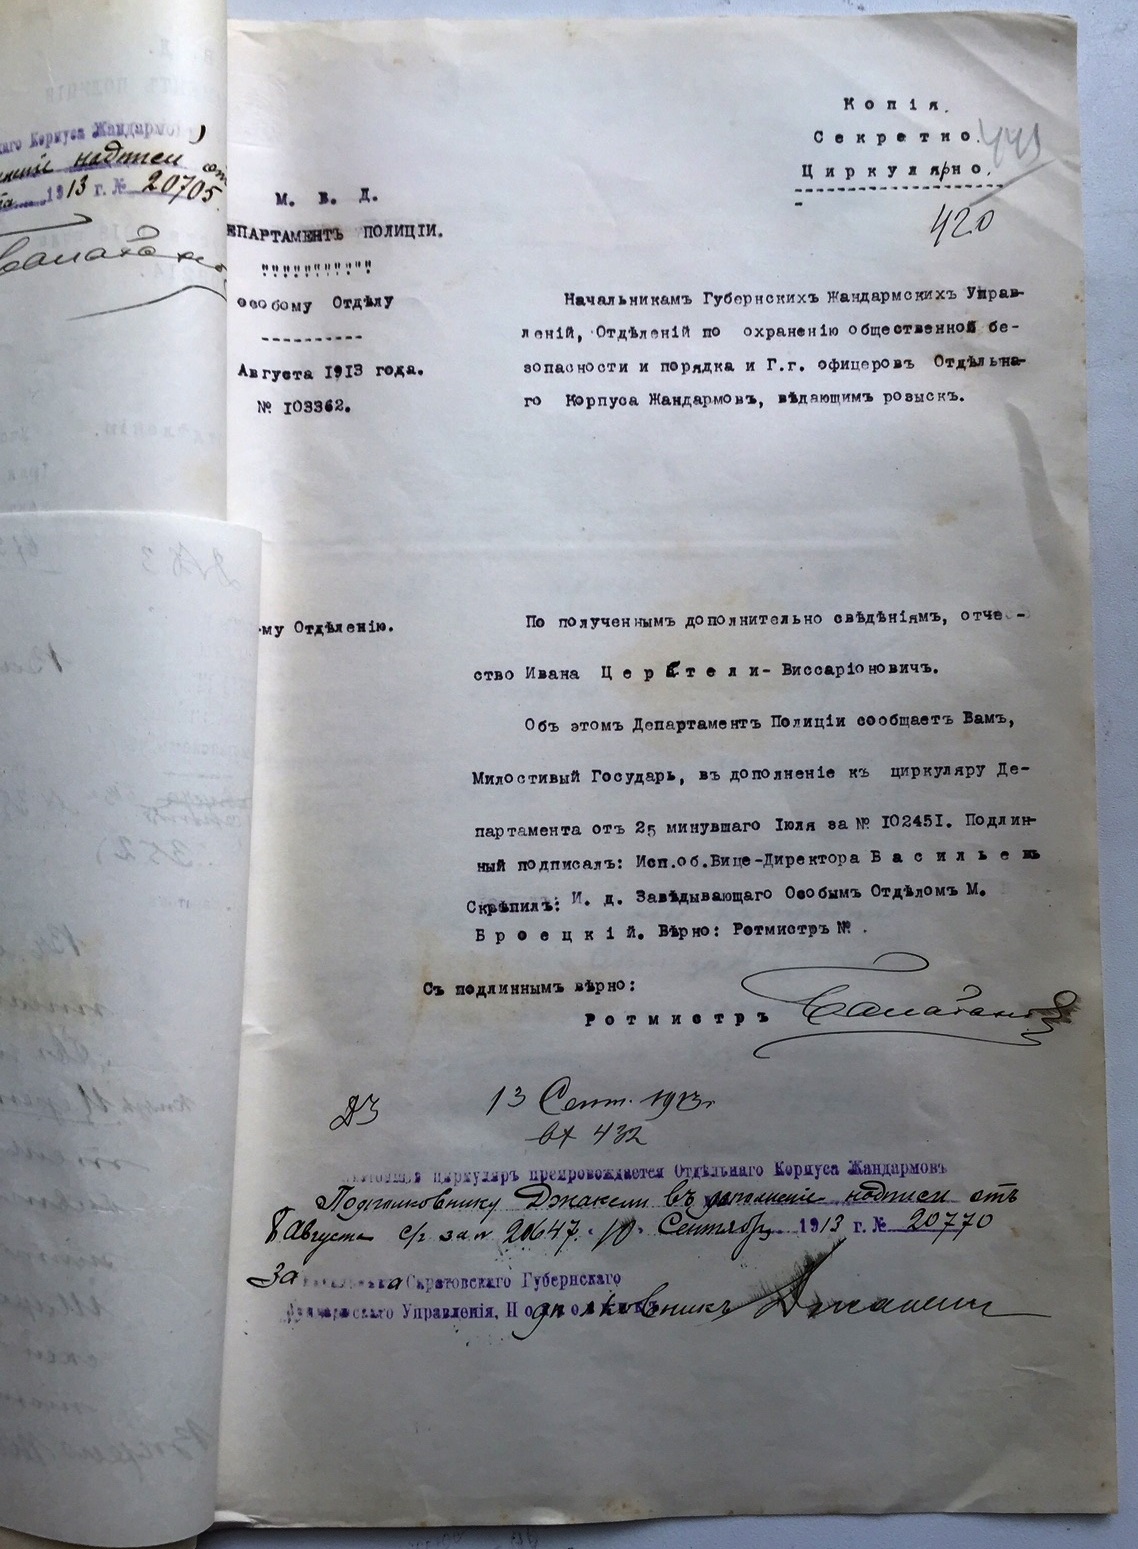 Копія.
Секретно.
Циркулярно.
443
420
М. В. Д.
ЕПАРТАМЕНТЪ ПОЛИЦІИ.
особому Отдѣлу
Августа 1913 года.
№ 103362.
Начальникамъ Губернскихъ Жандармскихъ Управ-
леній, Отдѣленій по охраненію общественной бе-
зопасности и порядка и Г.г. офицеровъ Отдѣльна-
го Корпуса Жандармовъ, вѣдающимъ розыскъ.
му Отдѣленію.
По полученнымъ дополнительно свѣдѣніямъ, отче-
ство Ивана Церетели- Виссаріоновичъ.
Объ этомъ Департаментъ Полиціи сообщаетъ Вамъ,
Милостивый Государь, въ дополненіе къ циркуляру Де-
партамента отъ 25 минувшаго Іюля за № 102451. Подлин-
ный подписалъ: Исп.об.Вице-Директора Васильевъ
Скрѣпилъ: И. д. Завѣдывающаго Особымъ Отдѣломъ М.
Броецкій. Вѣрно: Ротмистръ № .
Съ подлиннымъ вѣрно:
Ротмистръ
ДЗ
13 Сент. 1913 г
вх 432
циркуляръ препровождается Отдѣльнаго Корпуса Жандармовъ
Подполковнику Джакели въ дополненіе надписи отъ
8 Августа с/г за № 20647. 10 Сентября 1913 г. № 20770
За Саратовскаго Губернскаго
Управленія, Подполковникъ Джакели
аго Корпуса Жандармо
надписи от
1913 г. № 20705.